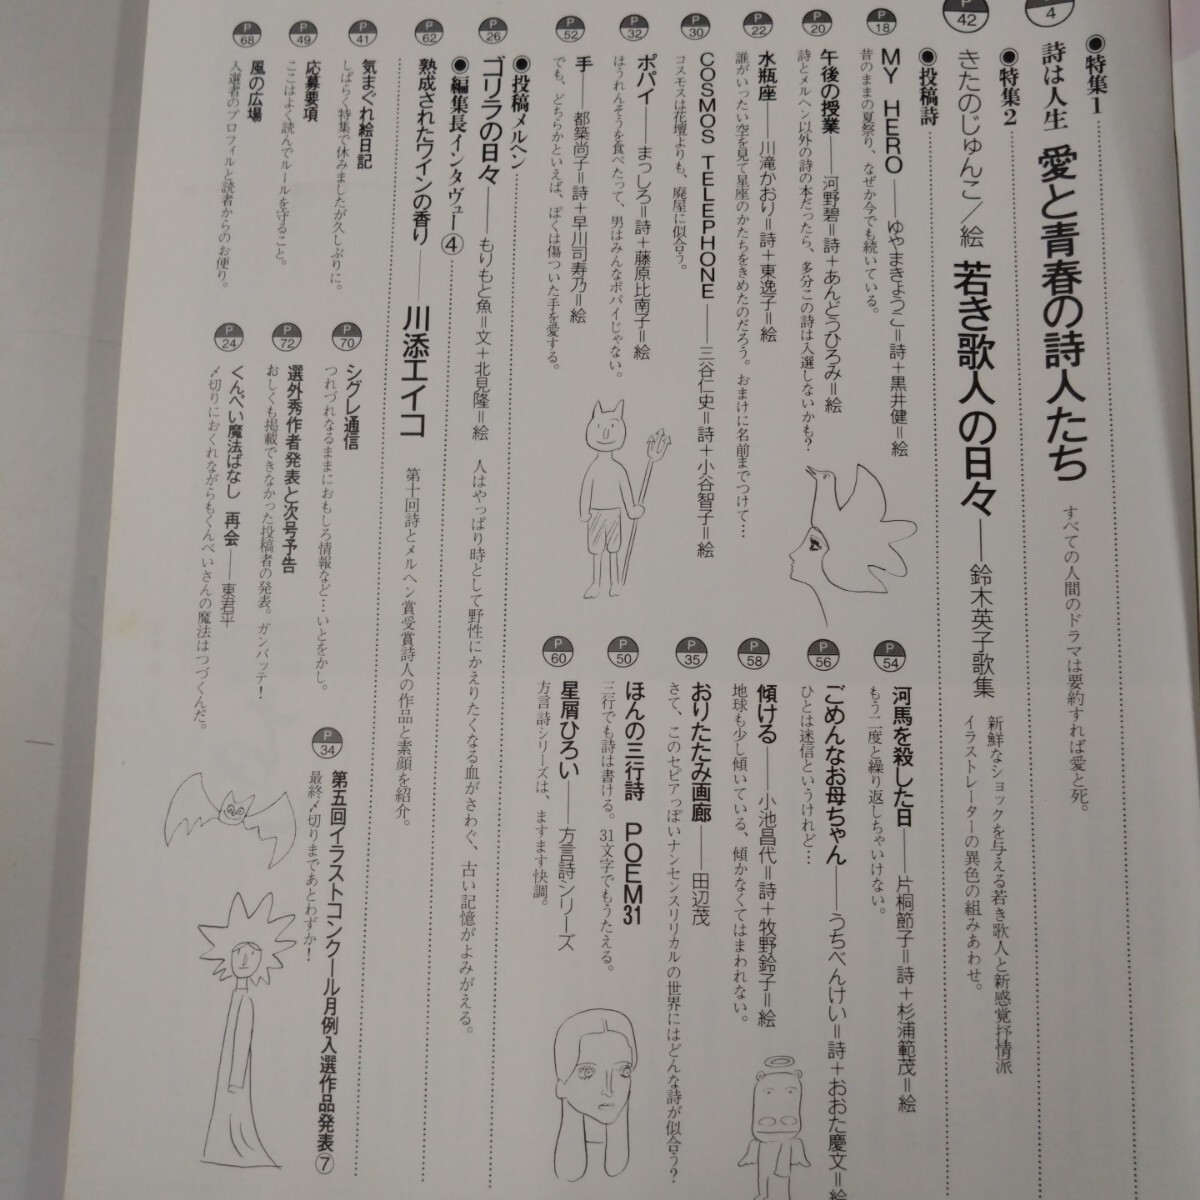 P4
●特集1
詩は人生 愛と青春の詩人たち
すべての人間のドラマは要約すれば愛と死。
P42
●特集2
きたのじゅんこ／絵 若き歌人の日々――鈴木英子歌集
新鮮なショックを与える若き歌人と新感覚抒情派
イラストレーターの異色の組みあわせ。
●投稿詩
P18
MY HERO――ゆやまきょうこ＝詩＋黒井健＝絵
昔のままの夏祭り、なぜか今でも続いている。
P20
午後の授業――河野碧＝詩＋あんどうひろみ＝絵
詩とメルヘン以外の詩の本だったら、多分この詩は入選しないかも？
P22
水瓶座――川滝かおり＝詩＋東逸子＝絵
誰がいったい空を見て星座のかたちをきめたのだろう。おまけに名前までつけて…
P30
COSMOS TELEPHONE――三谷仁史＝詩＋小谷智子＝絵
コスモスは花壇よりも、廃屋に似合う。
P32
ポパイ――まっしろ＝詩＋藤原比南子＝絵
ほうれんそうを食べたって、男はみんなポパイじゃない。
P52
手――都築尚子＝詩＋早川司寿乃＝絵
でも、どちらかといえば、ぼくは傷ついた手を愛する。
P54
河馬を殺した日――片桐節子＝詩＋杉浦範茂＝絵
もう二度と繰り返しちゃいけない。
P56
ごめんなお母ちゃん――うちべんけい＝詩＋おおた慶文＝絵
ひとは迷信というけれど…
P58
傾ける――小池昌代＝詩＋牧野鈴子＝絵
地球も少し傾いている、傾かなくてはまわれない。
P35
おりたたみ画廊――田辺茂
さて、このセピアっぽいナンセンスリリカルの世界にはどんな詩が似合う？
P50
ほんの三行詩 POEM31
三行でも詩は書ける。31文字でもうたえる。
P60
星屑ひろい――方言詩シリーズ
方言詩シリーズは、ますます快調。
●投稿メルヘン
P26
ゴリラの日々――もりもと魚＝文＋北見隆＝絵
人はやっぱり時として野性にかえりたくなる血がさわぐ、古い記憶がよみがえる。
●編集長インタヴュー④
P62
熟成されたワインの香り――川添エイコ
第十回詩とメルヘン賞受賞詩人の作品と素顔を紹介。
P41
気まぐれ絵日記
しばらく特集で休みましたが久しぶりに。
P49
応募要項
ここはよく読んでルールを守ること。
P68
風の広場
入選者のプロフィルと読者からのお便り。
P70
シグレ通信
つれづれなるままにおもしろ情報など…いとをかし。
P72
選外秀作者発表と次号予告
おしくも掲載できなかった投稿者の発表。ガンバッテ！
P24
くんぺい魔法ばなし 再会――東君平
〆切りにおくれながらもくんぺいさんの魔法はつづくんだ。
P34
第五回イラストコンクール月例入選作品発表⑦
最終〆切りまであとわずか！